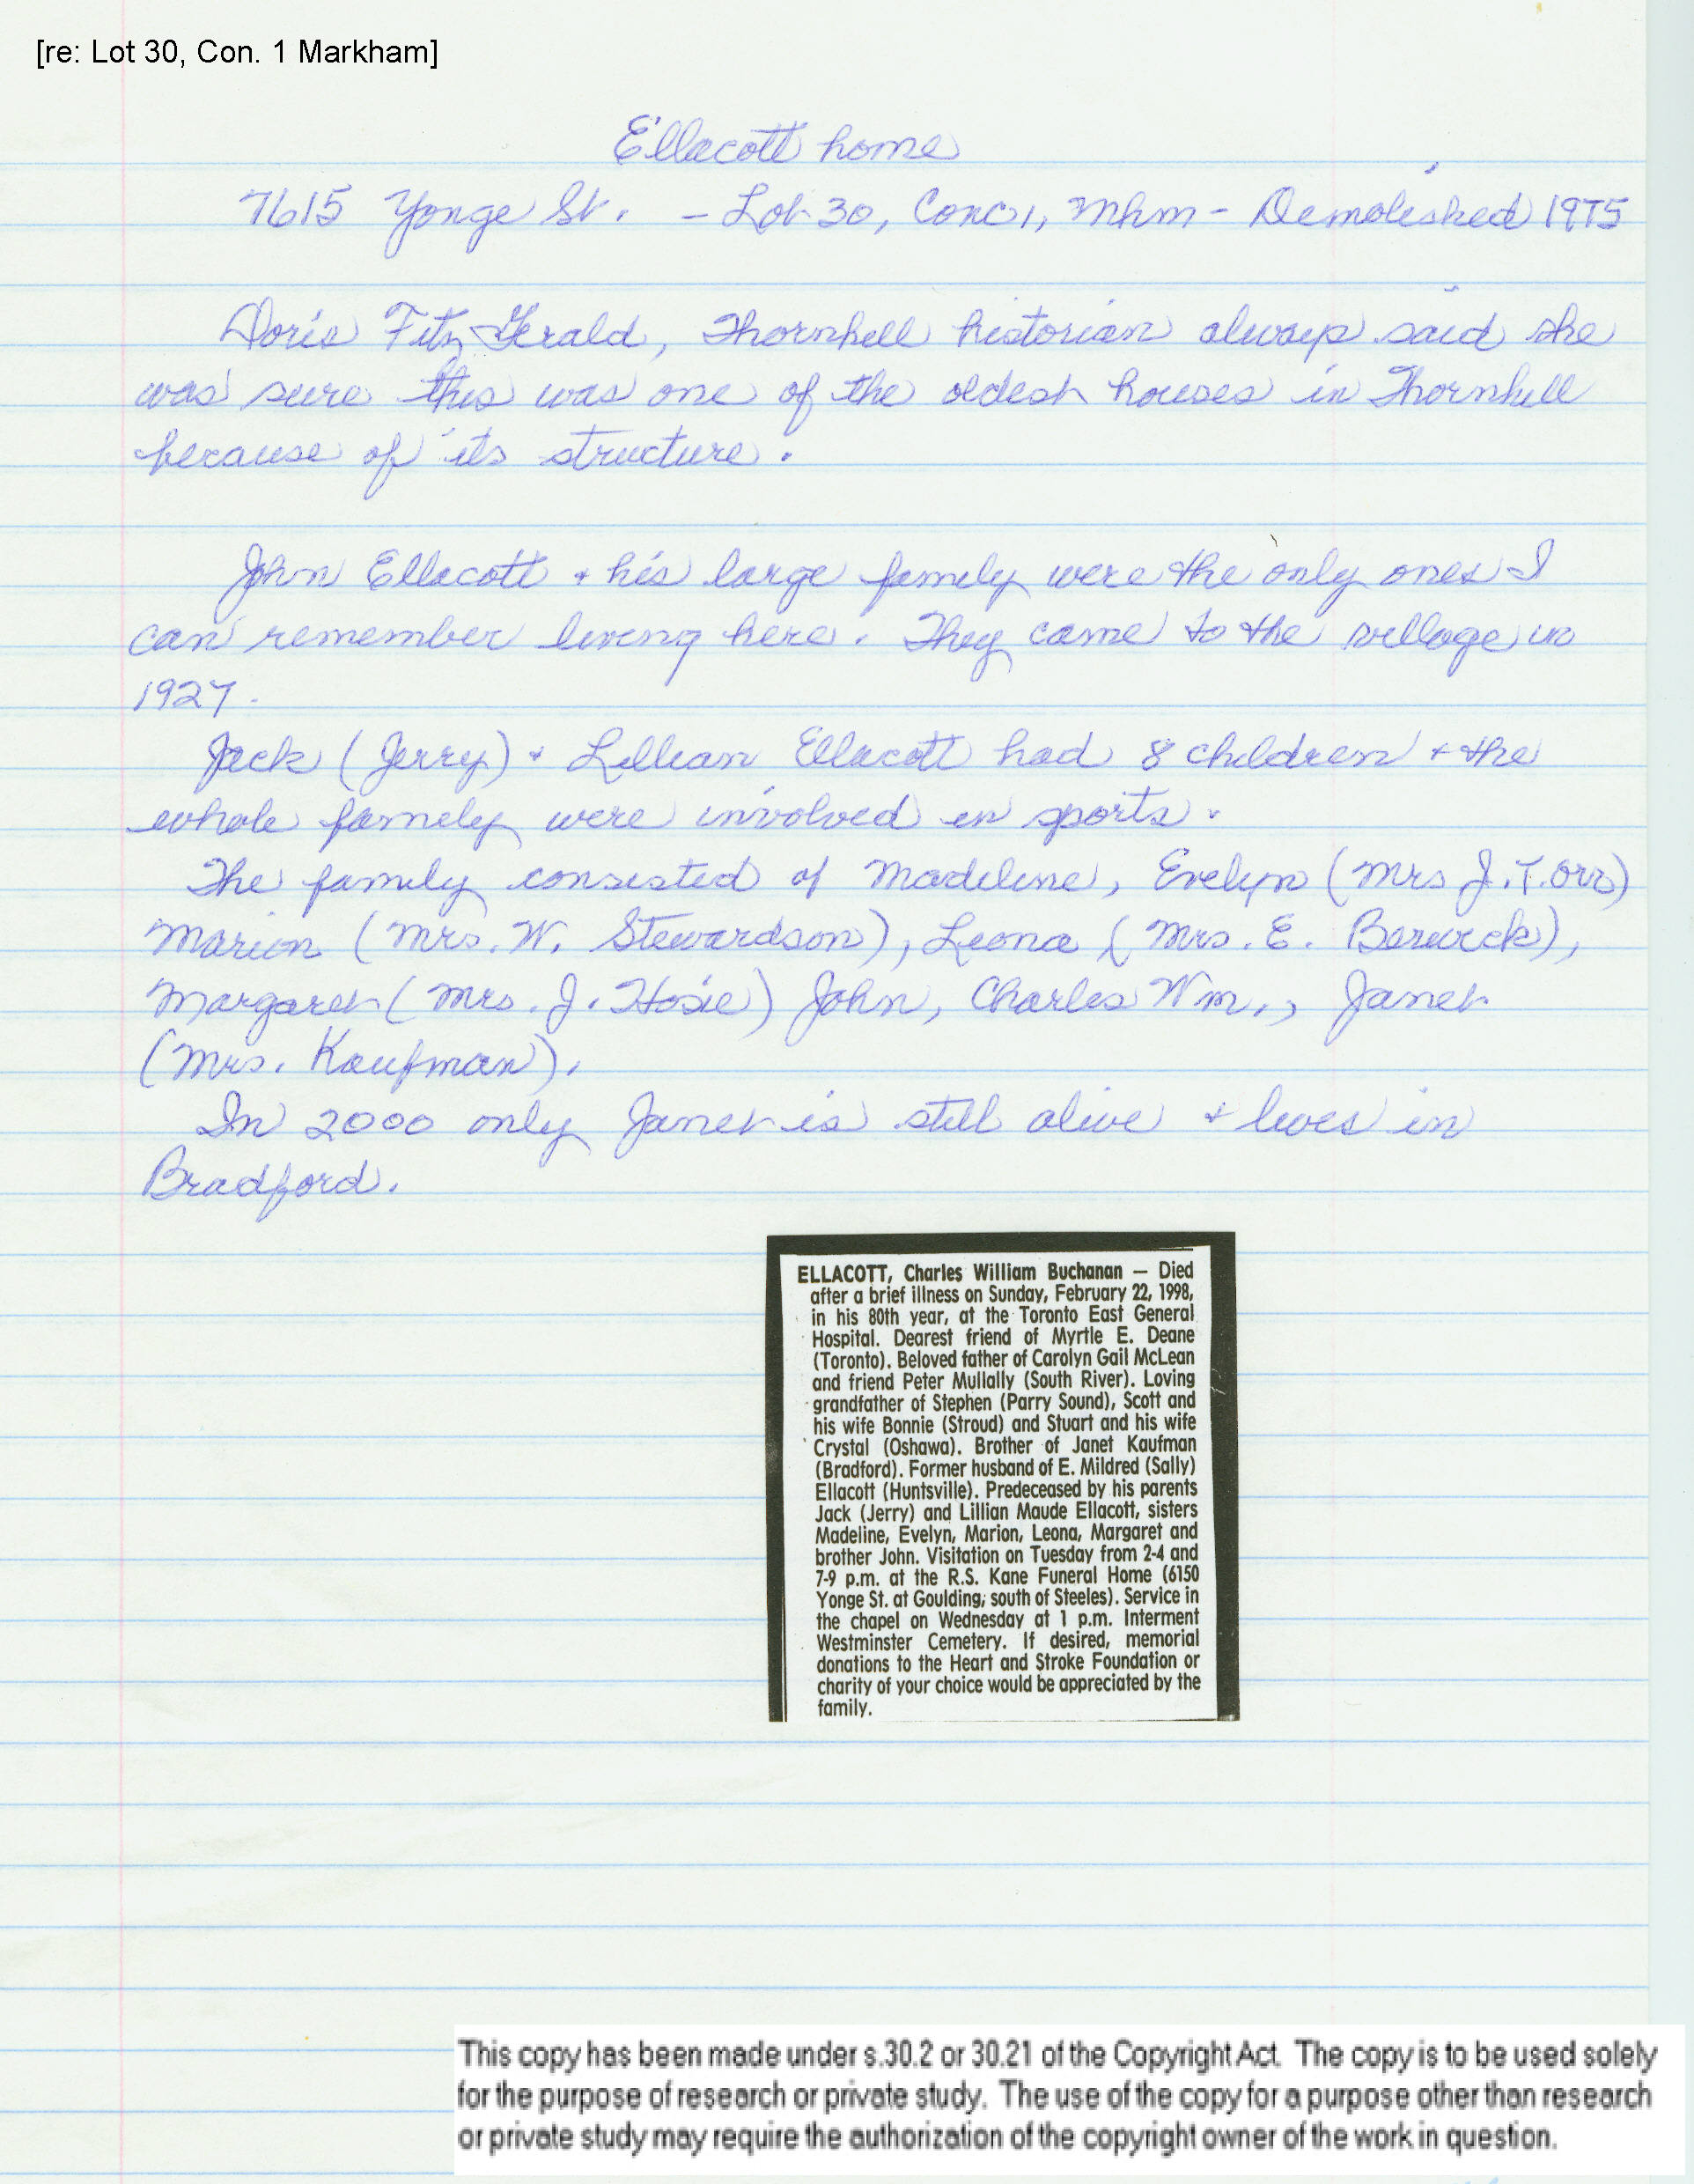 [re: Lot 30, Con. 1 Markham]
Ellacott home
7615 Yonge St. - Lot 30, Conc 1, Mhm - Demolished 1975
Doris Fitz Gerald, Thornhill historian always said she
was sure this was one of the oldest houses in Thornhill
because of its structure.
John Ellacott + his large family were the only ones I
can remember living here. They came to the village in
1927.
Jack (Jerry) + Lillian Ellacott had 8 children + the
whole family were involved in sports.
The family consisted of Madeline, Evelyn (Mrs J.T. Orr)
Marion (Mrs. W. Stewardson), Leona (Mrs. E. Berwick),
Margaret (Mrs. J. Hosie) John, Charles Wm., Janet
(Mrs. Kaufman).
In 2000 only Janet is still alive + lives in
Bradford.
ELLACOTT, Charles William Buchanan — Died
after a brief illness on Sunday, February 22, 1998,
in his 80th year, at the Toronto East General
Hospital. Dearest friend of Myrtle E. Deane
(Toronto). Beloved father of Carolyn Gail McLean
and friend Peter Mullally (South River). Loving
grandfather of Stephen (Parry Sound), Scott and
his wife Bonnie (Stroud) and Stuart and his wife
Crystal (Oshawa). Brother of Janet Kaufman
(Bradford). Former husband of E. Mildred (Sally)
Ellacott (Huntsville). Predeceased by his parents
Jack (Jerry) and Lillian Maude Ellacott, sisters
Madeline, Evelyn, Marion, Leona, Margaret and
brother John. Visitation on Tuesday from 2-4 and
7-9 p.m. at the R.S. Kane Funeral Home (6150
Yonge St. at Goulding; south of Steeles). Service in
the chapel on Wednesday at 1 p.m. Interment
Westminster Cemetery. If desired, memorial
donations to the Heart and Stroke Foundation or
charity of your choice would be appreciated by the
family.
This copy has been made under s.30.2 or 30.21 of the Copyright Act. The copy is to be used solely
for the purpose of research or private study. The use of the copy for a purpose other than research
or private study may require the authorization of the copyright owner of the work in question.